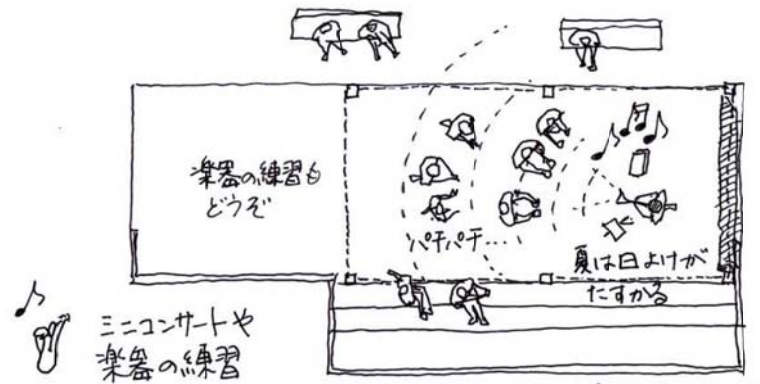 楽器の練習も
どうぞ
パチパチ…
夏は日よけが
たすかる
ミニコンサートや
楽器の練習